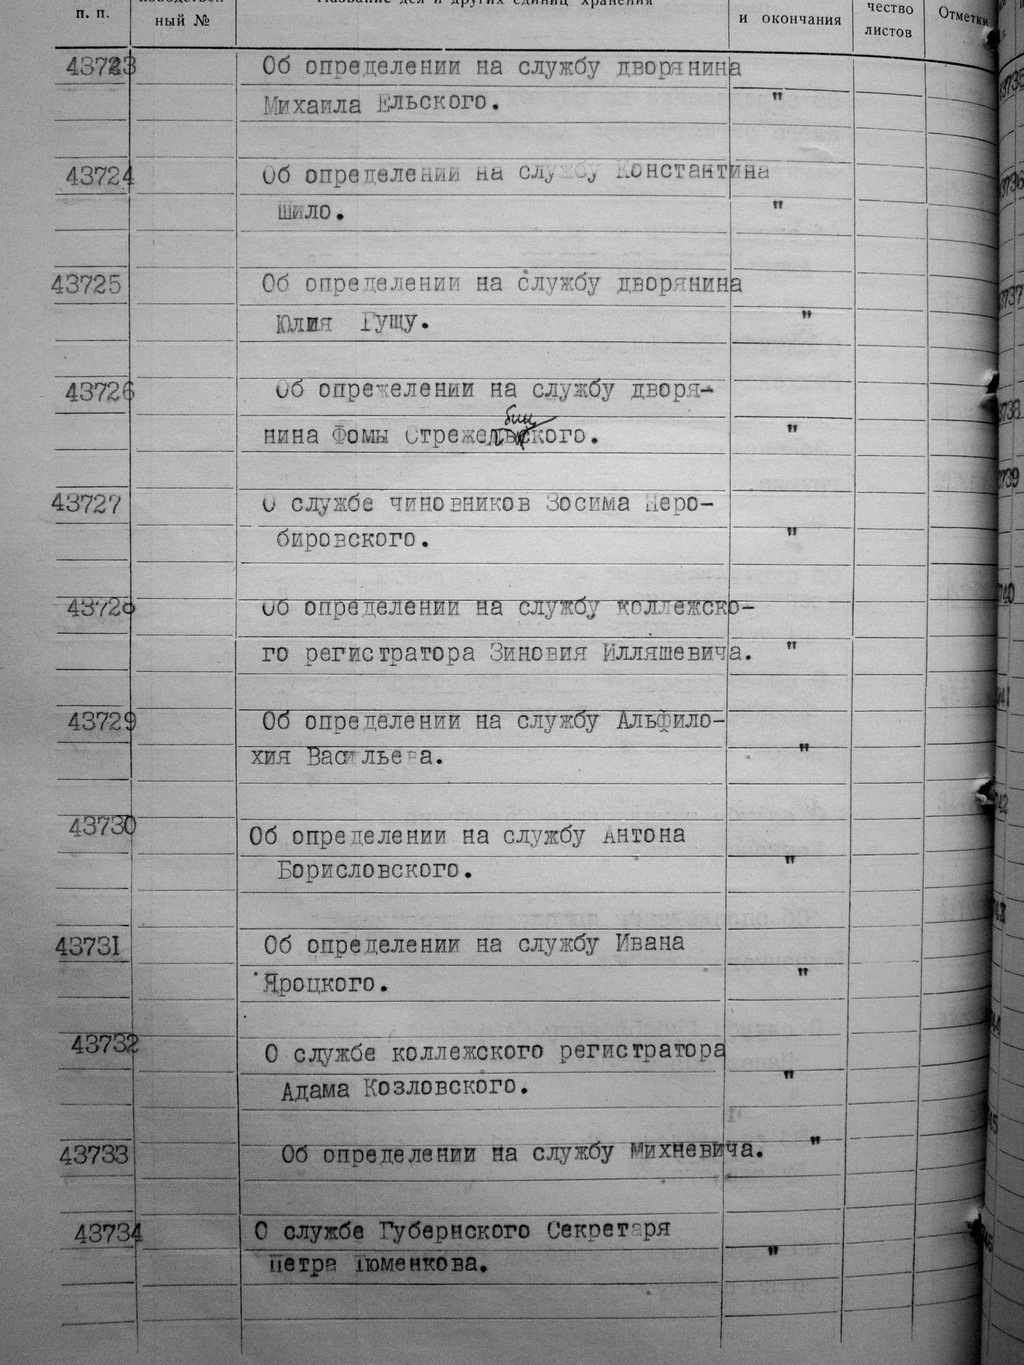 п. п.
ный №
Название дел и других единиц хранения
и окончания
чество
листов
Отметки
43723 Об определении на службу дворянина
Михаила Ельского. "
43724 Об определении на службу Константина
Шило. "
43725 Об определении на службу дворянина
Юлия Гущу. "
43726 Об опрежелении на службу дворя-
биц
нина Фомы Стрежельского. "
43727 О службе чиновников Зосима Неро-
бировского. "
43728 Об определении на службу коллежско-
го регистратора Зиновия Илляшевича. "
43729 Об определении на службу Альфило-
хия Васильева. "
43730 Об определении на службу Антона
Борисловского. "
43731 Об определении на службу Ивана
Яроцкого. "
43732 О службе коллежского регистратора
Адама Козловского. "
43733 Об определении на службу Михневича. "
43734 О службе Губернского Секретаря
Петра Тюменкова. "